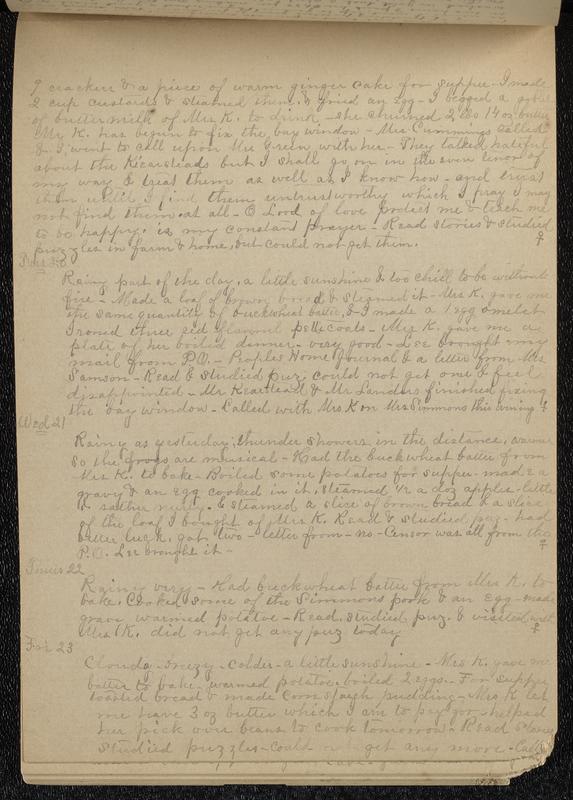 9 crackers & a piece of warm ginger cake for supper. I made
2 cup custards & steamed them. & fried an egg - I begged a
of buttermilk of Mrs K. to drink, - she churned 2 lbs 14 oz butter
Mr K. has begun to fix the bay window - Mrs Cummings called
& I went to call upon Mrs Green with her - They talked hateful
about the Kearsteads but I shall go on in the even tenor of
my way & treat them as well as I know how - and trust
them until I find them untrustworthy which I pray I may
not find them at all - O Lord of love protect me & teach me
to be happy. is my constant prayer - Read stories & studied
puzzles in farm & home, but could not get them.
Rainy part of the day, a little sunshine & too chill to be without
fire - Made a loaf of brown bread & steamed it - Mrs K. gave me
the same quantity of buckwheat batter, & I made a 1 egg omelet
Ironed three red flannel petticoats - Mrs K. gave me a
plate of her boiled dinner - very good - Lee brought my
mail from P.O. - Peoples Home Journal & a letter from Mrs
Samson - Read & studied puz. could not get one & feel
disappointed - Mr Kearstead & Mr Landers finished fixing
the bay window - Called with Mrs K on Mrs Simmons this evening
Wed 21
Rainy as yesterday; thunder showers in the distance, warm
so the frogs are musical - Had the buckwheat batter from
Mrs K. to bake - Boiled some potatoes for supper - made a
gravy & an egg cooked in it, steamed 1/2 a doz apples - little
rather & steamed a slice of brown bread & a slice
of the loaf I bought of Mrs K. Read & studied puz - had
better luck. got two - letter from - no - Censor was all from the
P.O. Lee brought it -
Thurs 22
Rainy very - Had buckwheat batter from Mrs K. to
bake. Cooked some of the Simmons pork & an egg - made
gravy warmed potatoe - Read, studied puz. & visited with
Mrs K. did not get any puz today
Fri 23
Cloudy - breezy - colder - a little sunshine - Mrs K. gave me
batter to bake, warmed potatoe, boiled 2 eggs. - For supper
toasted bread & made cornstarch pudding - Mrs K let
me have 3 oz butter which I am to pay for - helped
her pick over beans to cook tomorrow - Read story
studied puzzles - could not get any more -